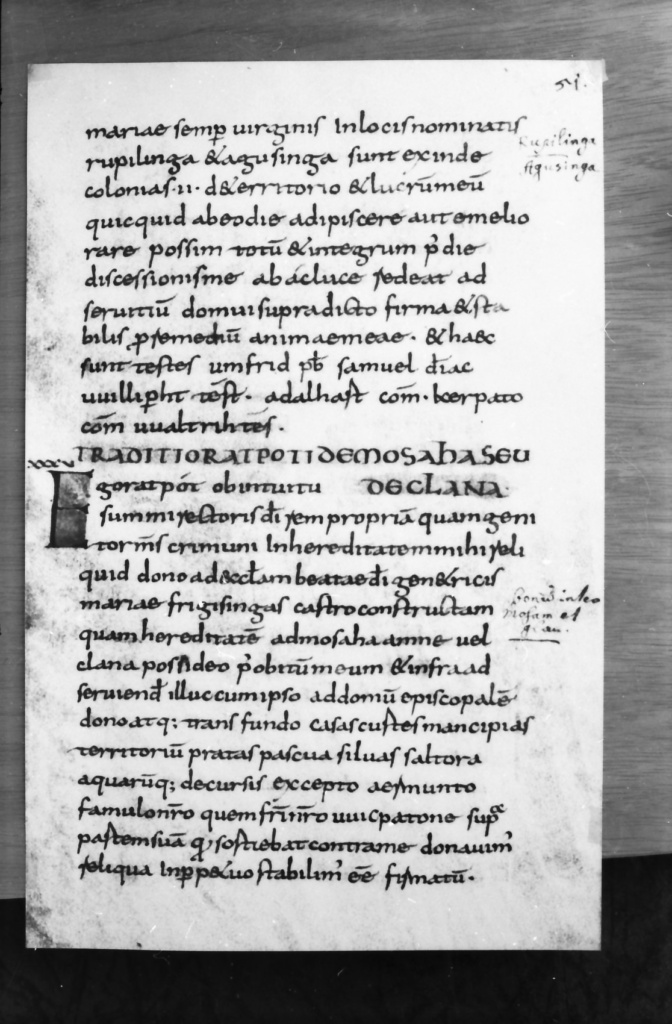 51.
mariae semp uirginis Inlocisnominatis
rupilinga &agusinga sunt exinde
colonias·11· d&erritorio &lucrūmeū
quicquid abeodie adipiscere aut emelio
rare possim totū &integrum p̄die
discessionisme ab ac luce sedeat ad
seruitiū domui supradicto firma &sta
bilis p remediū animaemeae· &haec
sunt testes umfrid pb̄ samuel diac̄
uuillip̄ht tēst· adalhast com̄·kerpato
com̄ uualtrih tēs·
TRADITIO RATPOTI DEMOSAHASEU
DECLANA·
Egoratpot obintuitu
summi rectoris dī rem propriā quamgeni
torms crimuni Inhereditatemmihi reli
quid dono adęccl̄am beataedī gen&ricis
mariae frigisingas castro constructam
quam hereditatē admosaha amne uel
clana possideo p̄ obitūmeum &infra ad
seruiend̄ illuc cumipso addomū episcopalē
donoatq; transfundo casascustesmancipias
territoriū pratas pascua siluas saltora
aquarūq; decursis excepto aesmunto
famulonr̄o quem fr̄ nr̄o uuicpatone sup
partemsuā q sostiebatcontrame donauim'
reliqua Inp p&uo stabilim' eē firmatū·
Rupilinga
Agusinga